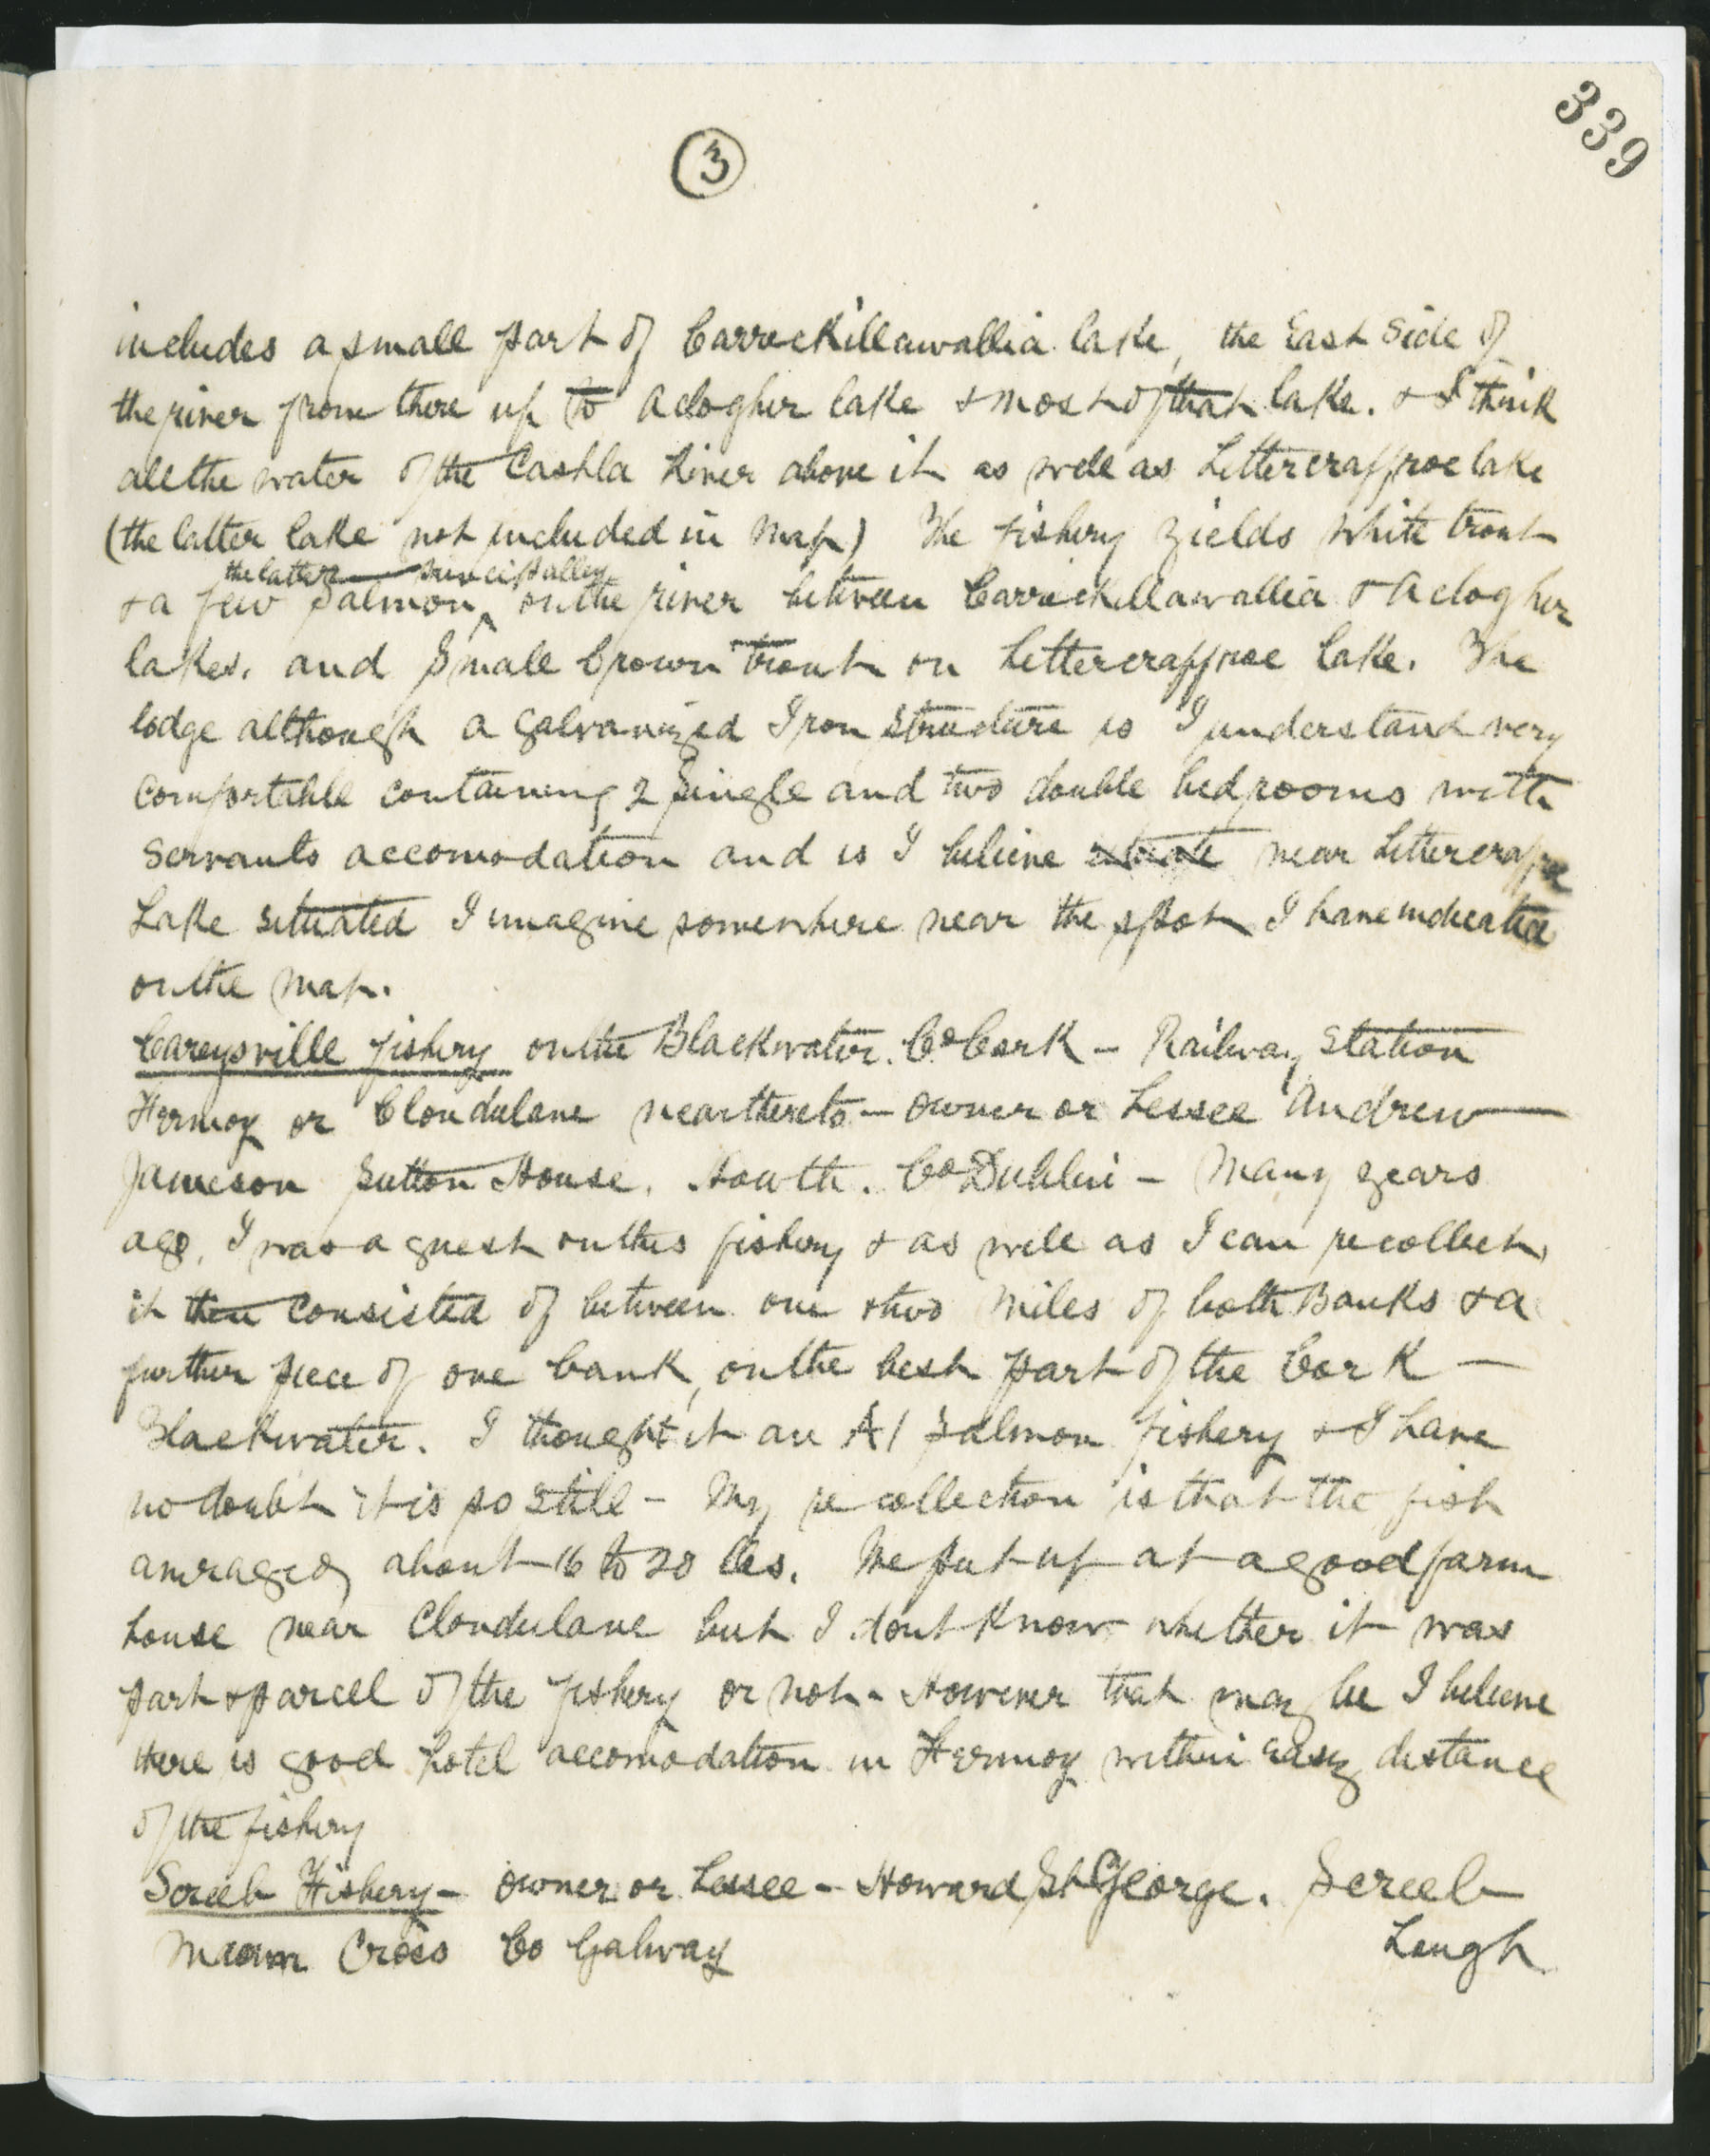 339
3
includes a small part of Carrickillawallia lake, the East Side of
the river from there up to Aclogher lake & most of that lake. & I think
all the water of the Cashla River above it as well as Lettercraffroe lake
(the latter lake not included in Map) The fishery yields White trout
the latter principally
& a few Salmon, on the river between Carrickillawallia & Aclogher
lakes. and Small brown trout on Lettercraffroe lake. The
lodge although a galvanized Iron structure is I understand very
comfortable containing 2 Single and two double bedrooms with
servants accomodation and is I believe near Lettercraffroe
Lake situated I imagine somewhere near the spot I have indicated
on the Map.
Careysville fishery on the Blackwater. Co Cork - Railway Station
Fermoy or Clondulane near thereto - Owner or Lessee Andrew
Jameson Sutton House, Howth. Co Dublin - Many years
ago, I was a guest on this fishery & as well as I can recollect,
it then consisted of between one & two Miles of both Banks & a
further piece of one bank, on the best part of the Cork
Blackwater. I thought it an A1 Salmon fishery & I have
no doubt it is so still - My recollection is that the fish
averaged about 16 to 20 lbs. We put up at a good farm
house near Clondulane but I dont know whether it was
part & parcel of the fishery or not - However that may be I believe
there is good hotel accomodation in Fermoy within easy distance
of the fishery
Screeb Fishery - Owner or Lessee - Howard St George. Screeb
Maam Cross Co Galway Lough